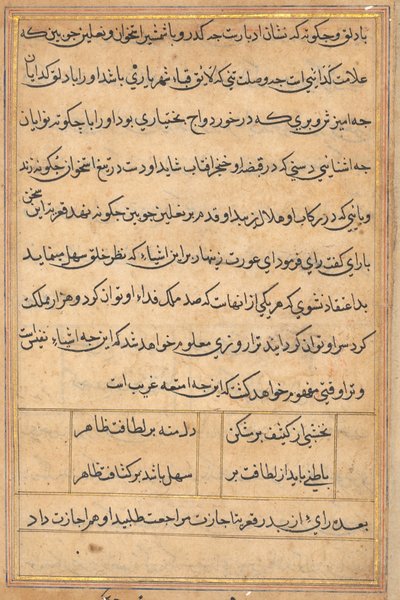 با دلق و چگونه که نشان ادبارست چه کدر و با شمشیر استخوان و نعلین چوبین که
علامت گدائی است چه وصلت تنی که لایق قبای شهریاری باشد او را با دلق گدایان
چه امیزش و بری که در خور دواج بختیاری بود او را با چگونه نوایان
چه اشنایی دستی که در قبضه او خنجر افتاب شاید او دست در تیغ استخوان چگونه زند
و پایی که در رکاب او هلال زیبد او قدم بر نعلین چوبین چگونه نهد قعر بتا این سخن
با رای گفت رای فرمود ای عورت زینهار برین اشیاء که نظر خلق سهل مینماید
بد اعتقاد نشوی که هر یکی از انهاست که صد ملک فداء او توان کرد و هزار مملکت
گرد سر او توان گردانید ترا روزی معلوم خواهد شد که این چه اشیاء نفیس است
و ترا وقتی مفهوم خواهد گشت که این چه امتعه غریب است
نخشبی از کثیف برشکن دل منه بر لطافت ظاهر
باطنی باید از لطافت بر سهل باشد بر کثافت ظاهر
بعده رای از پدر قعر بتا اجازت مراجعت طلبید او هم اجازت داد